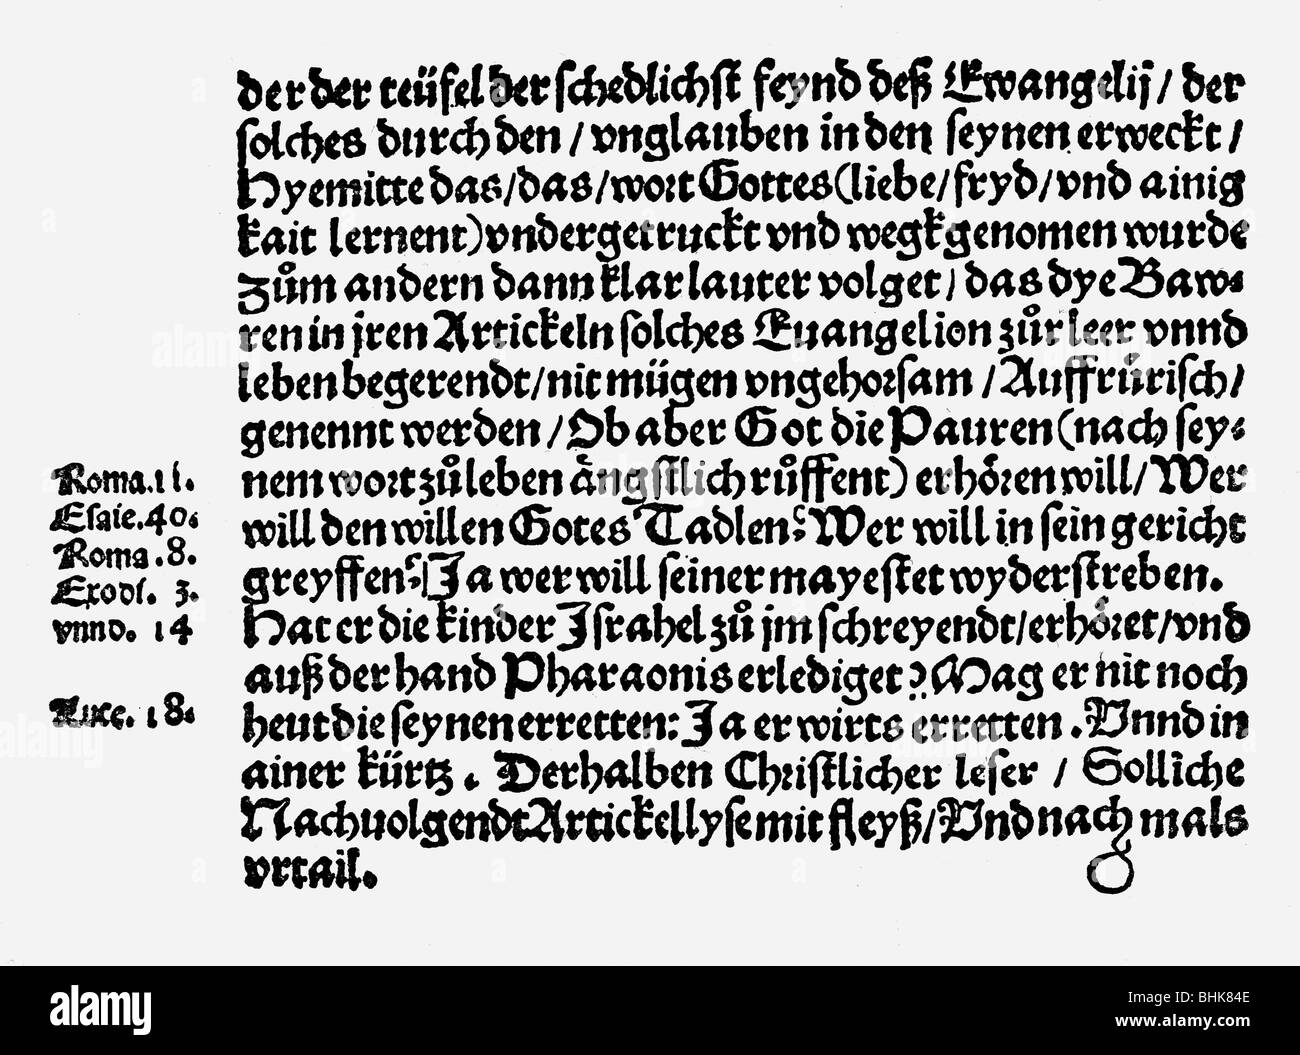 der der teüfel der schedlichst feynd deß Ewangelij / der
solches durch den / vnglauben in den seynen erweckt /
Hyemitte das/das/wort Gottes(liebe/fryd/vnd ainig
kait lernent)vndergetruckt vnd wegkgenomen wurde
zům andern dann klar lauter volget / das dye Baw-
ren in jren Artickeln solches Euangelion zůr leer vnnd
leben begerendt/nit mügen vngehorsam / Auffrůrisch/
genennt werden / Ob aber Got die Pauren(nach sey-
Roma.11. nem wort zůleben ängstlich růffent) erhören will/ Wer
Esaie.40. will den willen Gotes Tadlen? Wer will in sein gericht
Roma.8. greyffen? Ja wer will seiner mayestet wyderstreben.
Exodi. 3. Hat er die kinder Israhel zů jm schreyendt/erhöret/vnd
vnnd. 14 auß der hand Pharaonis erlediget? Mag er nit noch
Luce. 18. heut die seynen erretten: Ja er wirts erretten. Vnnd in
ainer kürtz. Derhalben Christlicher leser / Solliche
Nachuolgendt Artickel lyse mit fleyß/Vnd nach mals
vrtail.
alamy
Image ID: BHK84E
www.alamy.com